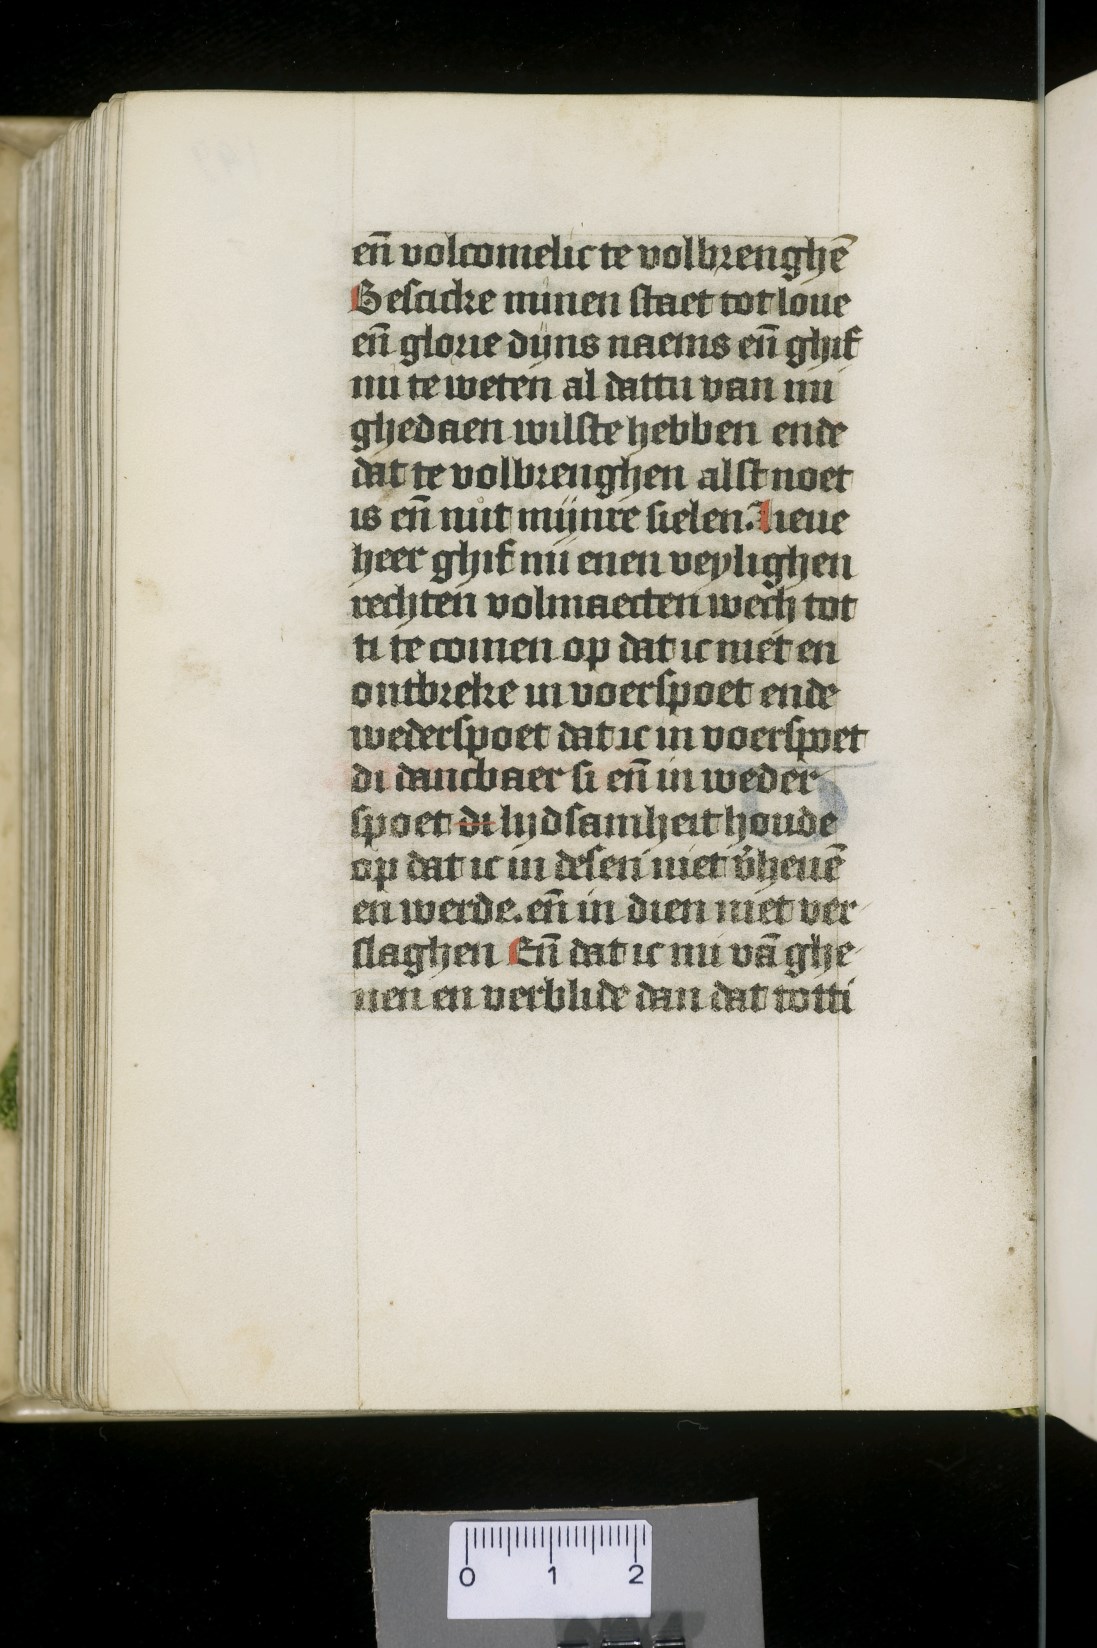 en̄ volcomelic te volbrenghē
Gescicke minen staet tot loue
en̄ glorie dijns naems en̄ ghif
mi te weten al dattu van mi
ghedaen wilste hebben ende
dat te volbrenghen alst noet
is en̄ nut mijnre sielen. Lieue
heer ghif mi enen veylighen
rechten volmaecten wech tot
ti te comen op dat ic niet en
ontbreke in voerspoet ende
wederspoet dat ic in voerspoet
di dancbaer si en̄ in weder
spoet di lijdsamheit houde
op dat ic in desen niet v̄heuē
en werde. en̄ in dien niet ver
slaghen En̄ dat ic mi vā ghe
nen en verblide dan dat totti
0 1 2